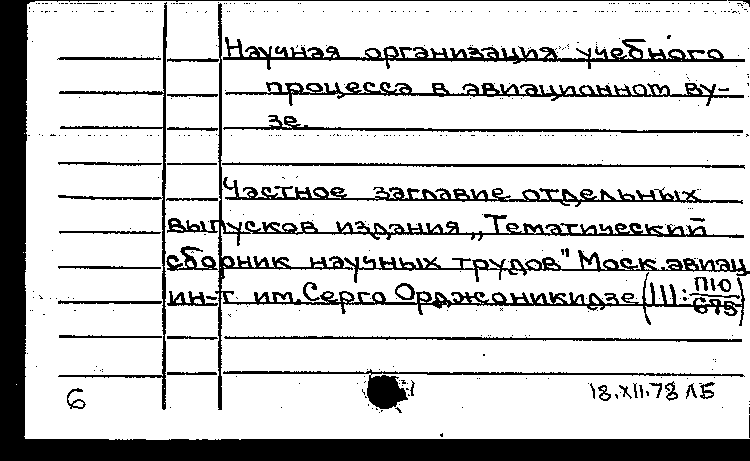 Научная организация учебного
процесса в авиационном ву-
зе.
Частное заглавие отдельных
выпусков издания „Тематический
сборник научных трудов" Моск. авиац.
ин-т им. Серго Орджоникидзе (III: П10/675)
6
18.XII.78 ЛБ